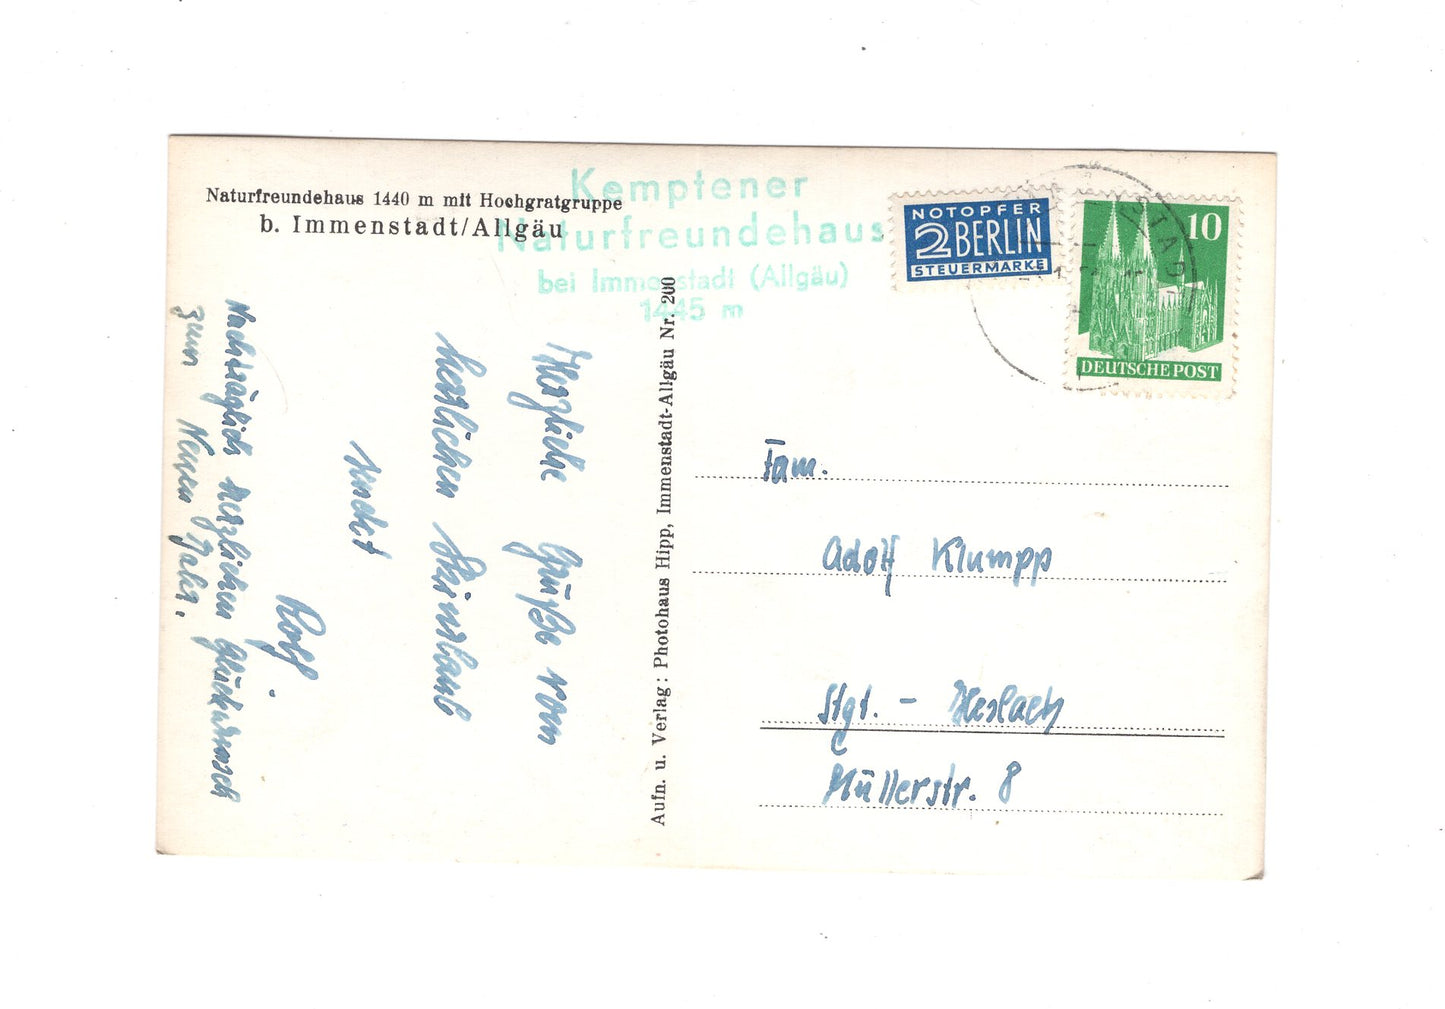 Naturfreundehaus 1440 m mit Hochgratgruppe
b. Immenstadt/Allgäu
Kemptener
Naturfreundehaus
bei Immenstadt (Allgäu)
1445 m
NOTOPFER
2 BERLIN
STEUERMARKE
10
DEUTSCHE POST
Herzliche Grüße vom
herrlichen Skiurlaub
sendet
Rolf.
Nachträglich herzlichen Glückwunsch
zum Neuen Jahr.
Aufn. u. Verlag: Photohaus Hipp, Immenstadt-Allgäu Nr. 200
Fam.
Adolf Klumpp
Stgt. - Heslach
Müllerstr. 8